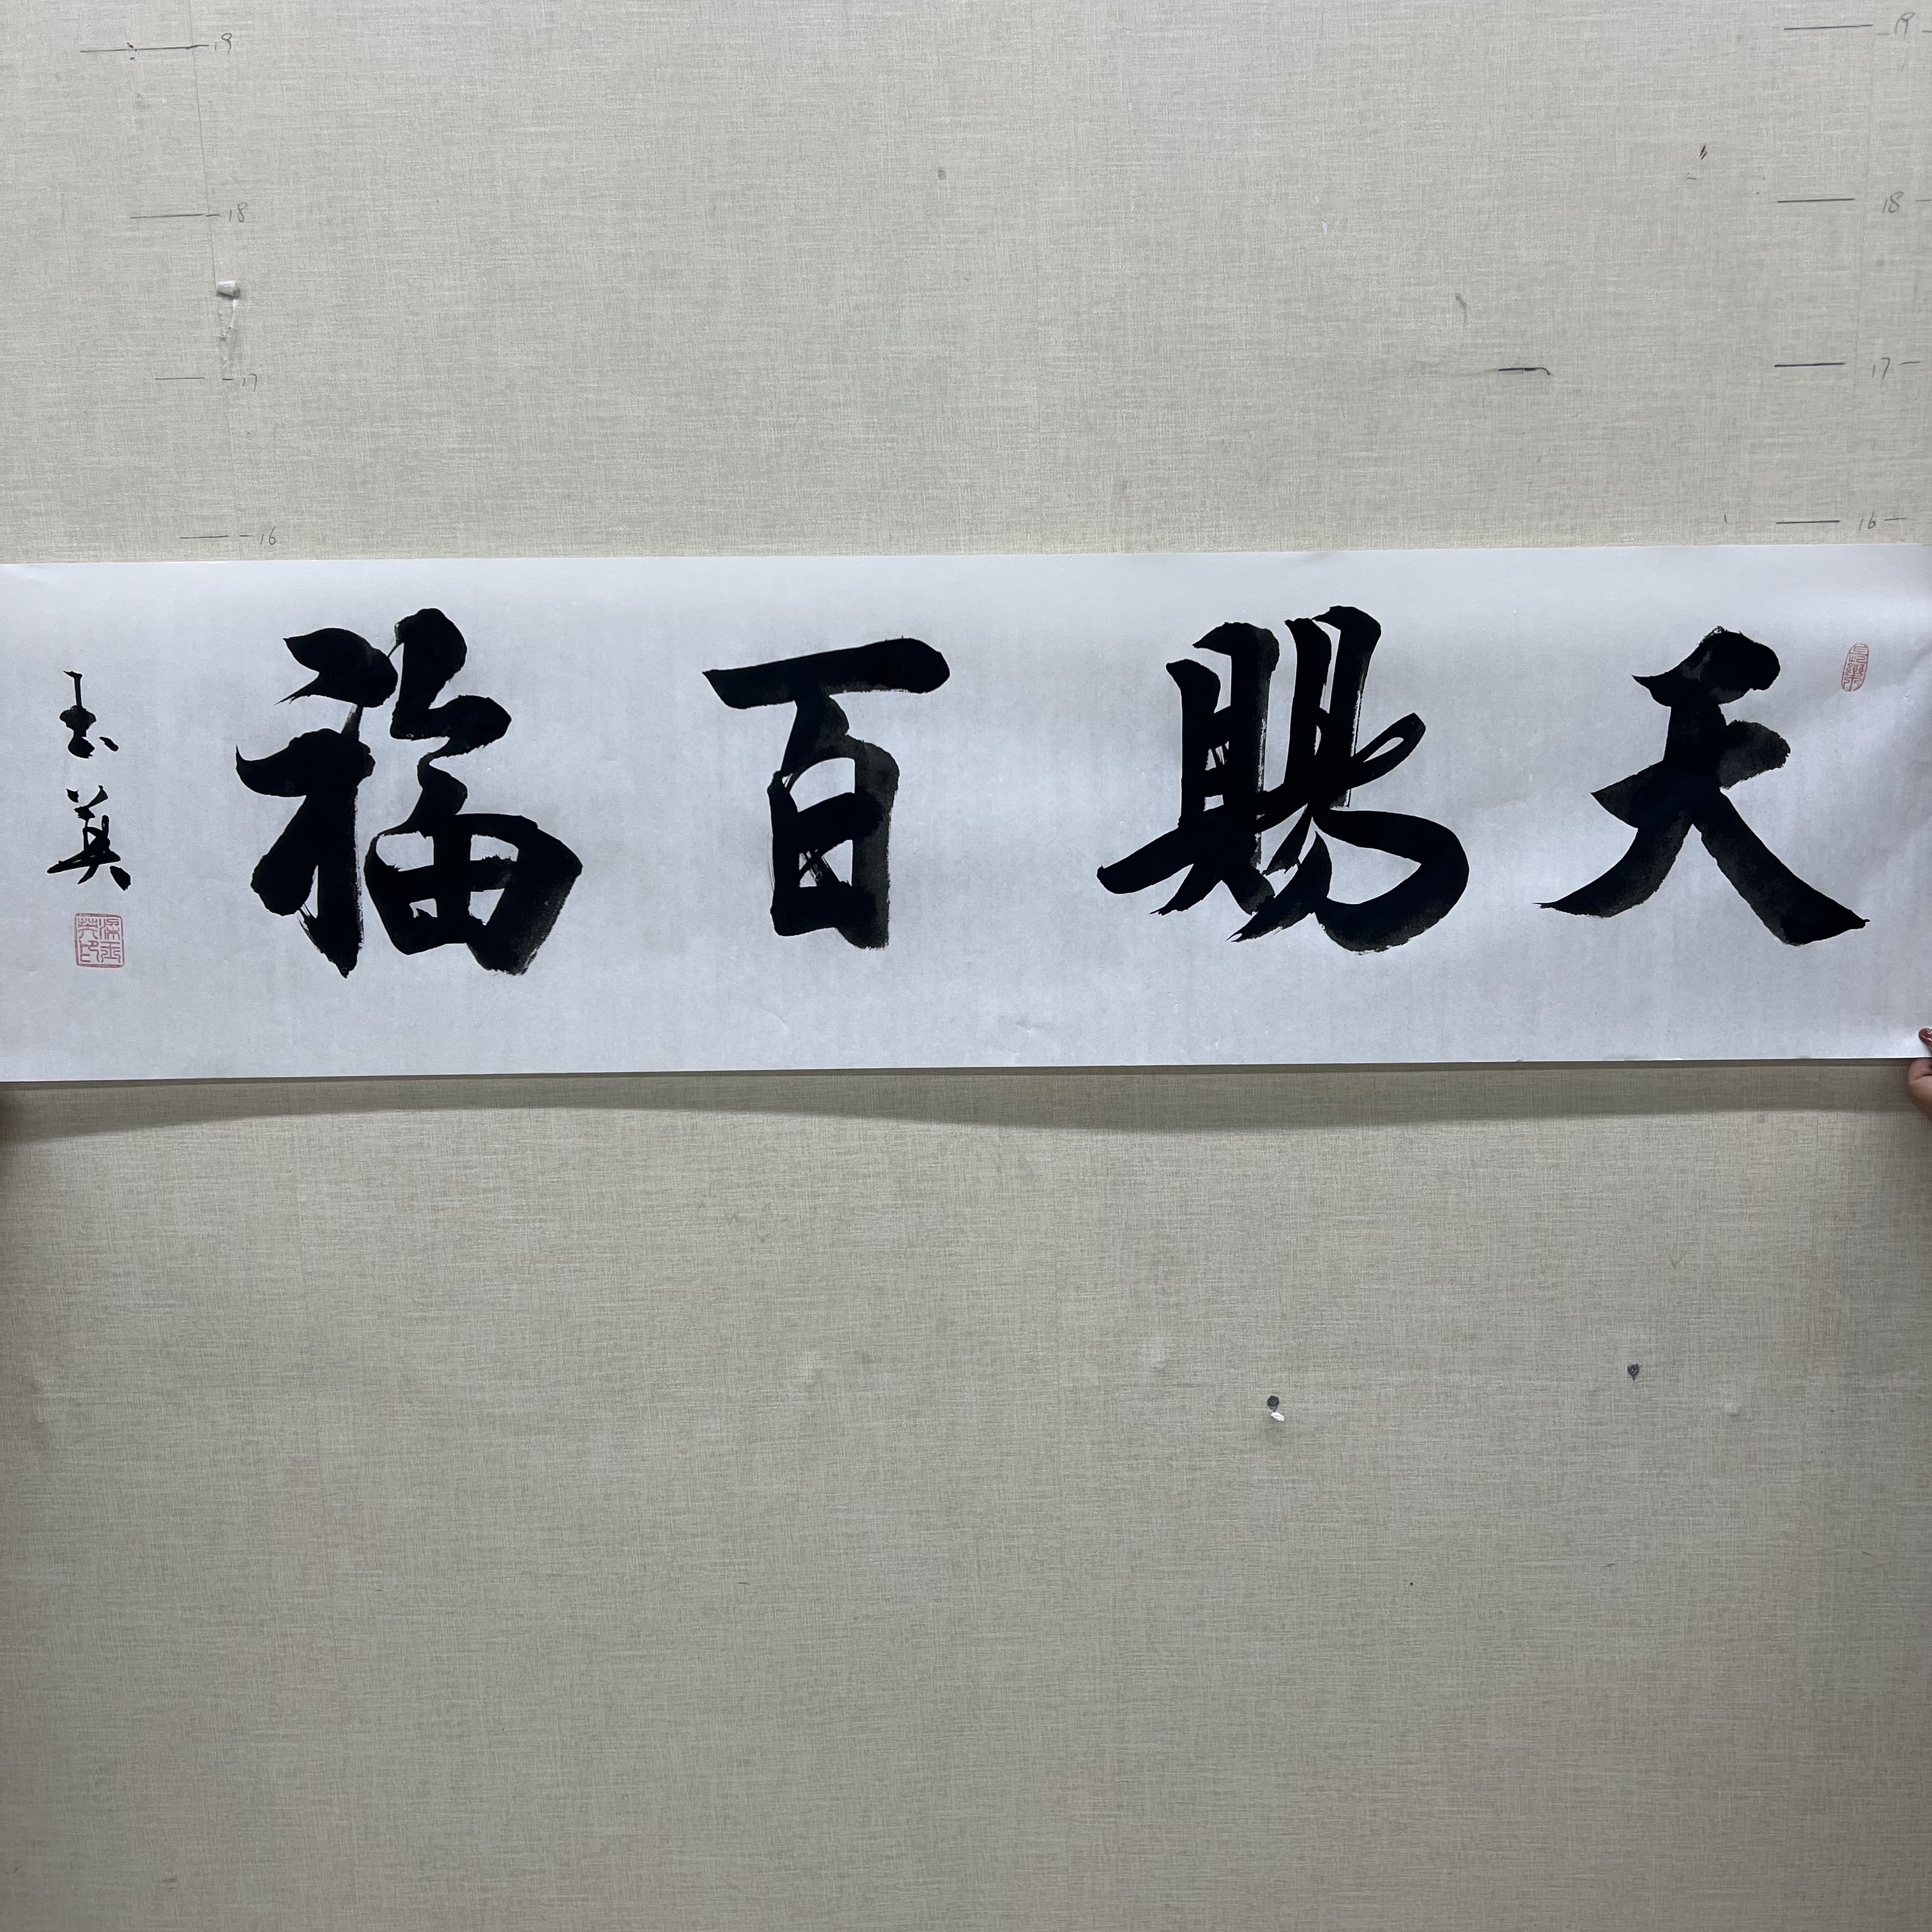 天賜百福
玉英
19
18
17
16
19
18
17
16